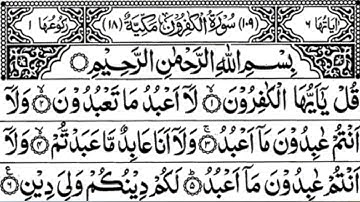 اٰیَاتُهَا ٦ (١٠٩) سُوْرَةُ الْكٰفِرُوْنَ مَكِّيَّةٌ (١٨) رُكُوْعُهَا ١
بِسْمِ اللّٰهِ الرَّحْمٰنِ الرَّحِيْمِ
قُلْ يٰۤاَيُّهَا الْكٰفِرُوْنَ ۝١ لَاۤ اَعْبُدُ مَا تَعْبُدُوْنَ ۝٢ وَلَاۤ
اَنْتُمْ عٰبِدُوْنَ مَاۤ اَعْبُدُ ۝٣ وَلَاۤ اَنَا عَابِدٌ مَّا عَبَدْتُّمْ ۝٤ وَلَاۤ
اَنْتُمْ عٰبِدُوْنَ مَاۤ اَعْبُدُ ۝٥ لَكُمْ دِيْنُكُمْ وَلِيَ دِيْنِ ۝٦